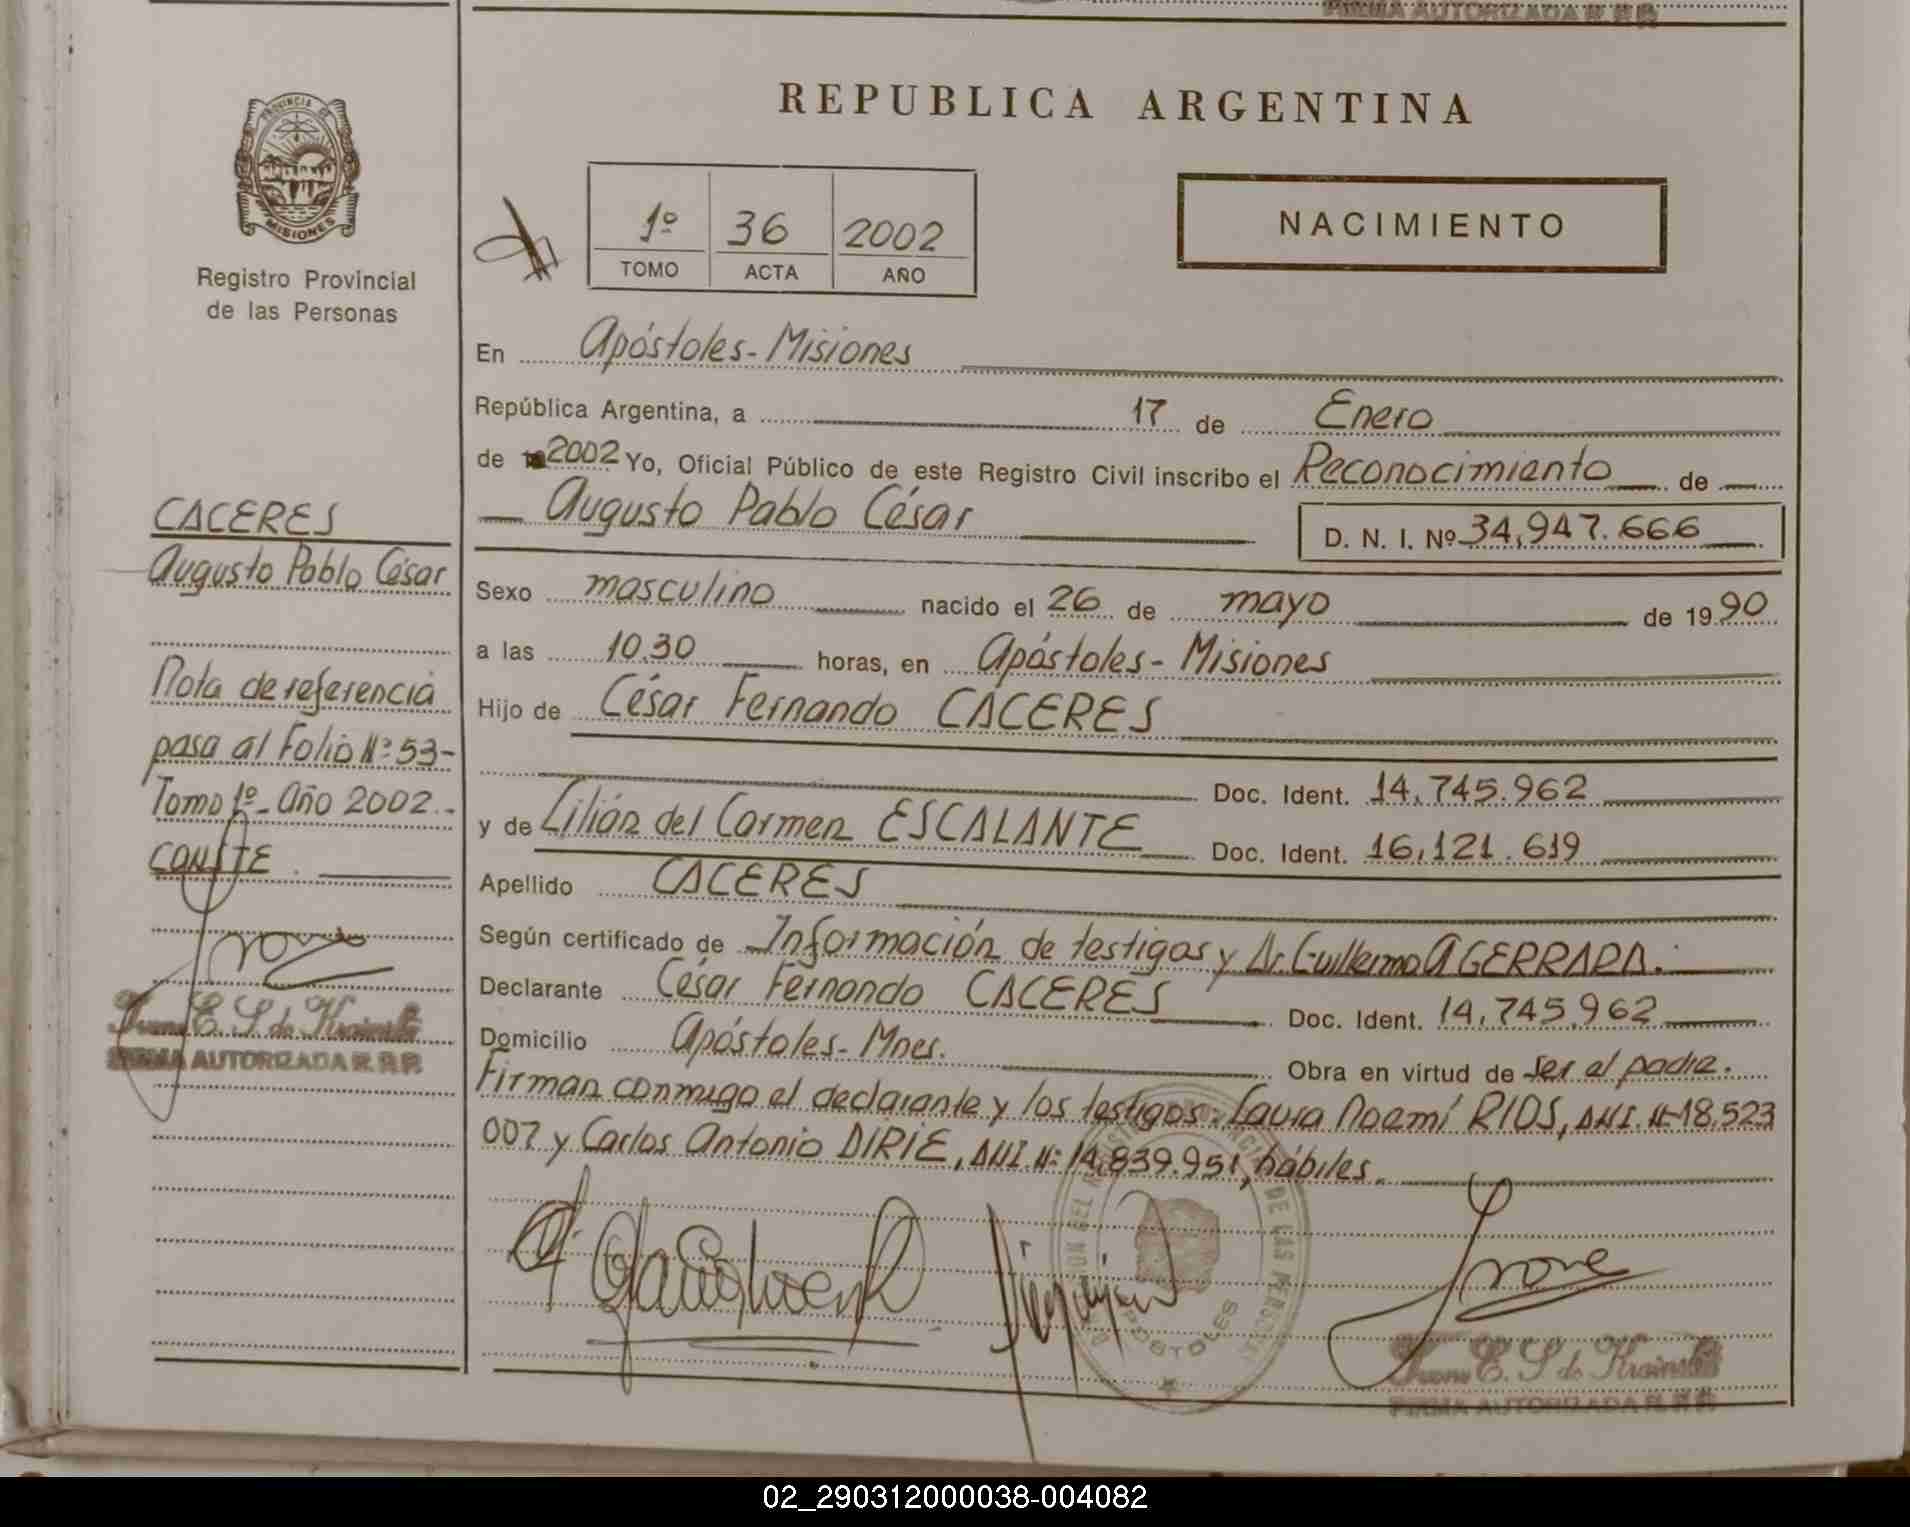 FIRMA AUTORIZADA R.P.P.
PROVINCIA DE
MISIONES
Registro Provincial
de las Personas
CACERES
Augusto Pablo César
Nota de referencia
pasa al Folio Nº 53-
Tomo 1º- Año 2002.-
CONSTE.
FIRMA AUTORIZADA R.P.P.
REPUBLICA ARGENTINA
1º 36 2002
TOMO ACTA AÑO
NACIMIENTO
En Apóstoles-Misiones
República Argentina, a 17 de Enero
de 2002 Yo, Oficial Público de este Registro Civil inscribo el Reconocimiento de
Augusto Pablo César D. N. I. Nº 34,947.666
Sexo masculino nacido el 26 de mayo de 1990
a las 10.30 horas, en Apóstoles-Misiones
Hijo de César Fernando CÁCERES
Doc. Ident. 14,745.962
y de Lilián del Carmen ESCALANTE Doc. Ident. 16,121.619
Apellido CACERES
Según certificado de Información de testigos y Dr. Guillermo A GERRARD.
Declarante César Fernando CACERES Doc. Ident. 14,745.962
Domicilio Apóstoles-Mnes. Obra en virtud de ser el padre.
Firman conmigo el declarante y los testigos: Laura Noemí RIOS, DNI. Nº 18.523
007 y Carlos Antonio DIRIE, DNI Nº 14.839.951, hábiles.
DE LAS PERSONAS
APOSTOLES
FIRMA AUTORIZADA R.P.P.
02_290312000038-004082